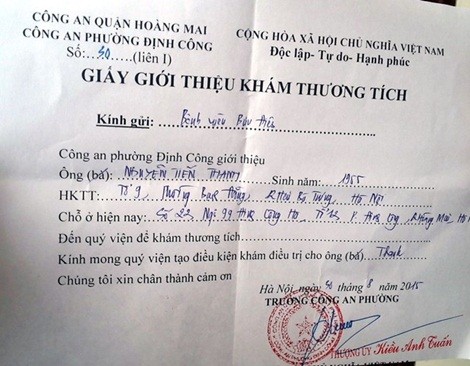 CÔNG AN QUẬN HOÀNG MAI
CÔNG AN PHƯỜNG ĐỊNH CÔNG
Số: 50 (liên I)
CỘNG HÒA XÃ HỘI CHỦ NGHĨA VIỆT NAM
Độc lập- Tự do- Hạnh phúc
GIẤY GIỚI THIỆU KHÁM THƯƠNG TÍCH
Kính gửi: Bệnh viện Bưu điện
Công an phường Định Công giới thiệu
Ông (bà): NGUYỄN TIẾN THANH Sinh năm: 1955
HKTT: Tổ 9, Phường Bạch Đằng, Hà Nội
Chỗ ở hiện nay: Số 22 Ngõ 99
Đến quý viện để khám thương tích
Kính mong quý viện tạo điều kiện khám điều trị cho ông (bà) Thanh
Chúng tôi xin chân thành cám ơn
Hà Nội, ngày 30 tháng 8 /2015
TRƯỞNG CÔNG AN PHƯỜNG
THƯỢNG ÚY Kiều Anh Tuấn